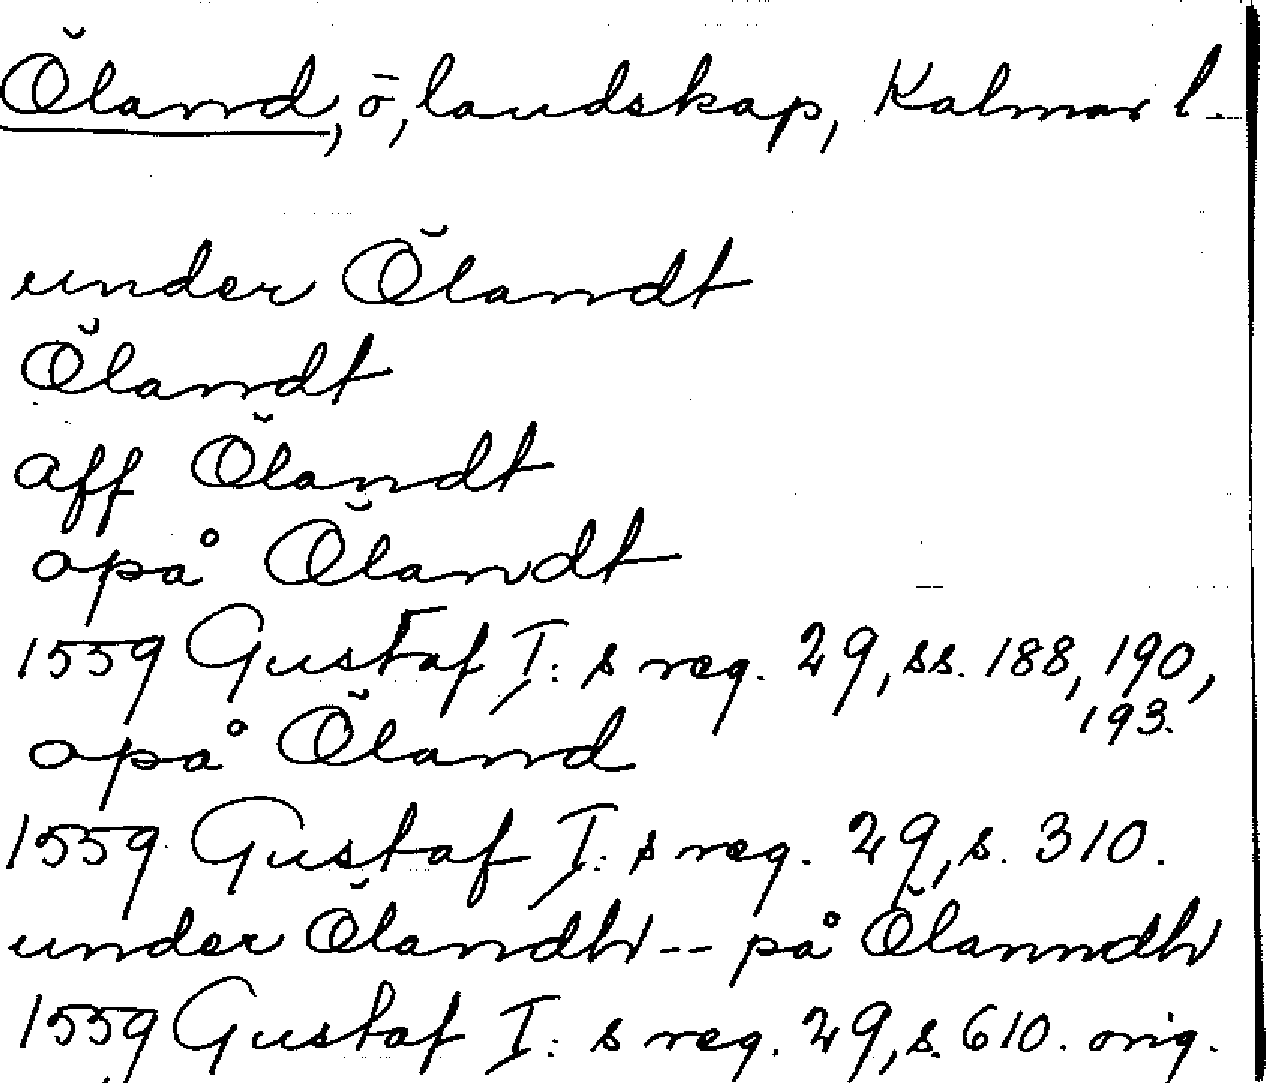 Öland, ö, landskap, Kalmar l.
under Ölandt
Ölandt
aff Ölandt
opå Ölandt
1559 Gustaf I:s reg. 29, ss. 188, 190,
193.
opå Öland
1559 Gustaf I:s reg. 29, s. 310.
under Ölandh -- på Ölanndh
1559 Gustaf I:s reg. 29, s. 610. orig.